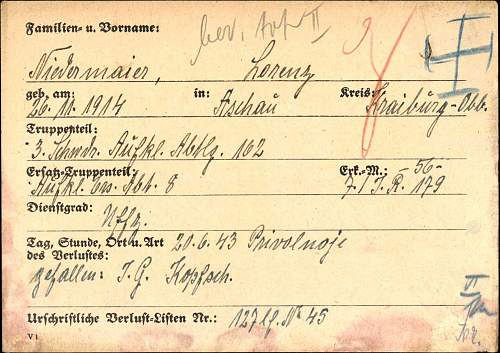 Familien- u. Vorname:
II
Niedermaier, Lorenz
geb. am: in: Kreis:
26. 11. 1914 Aschau Kraiburg-Obb.
Truppenteil:
3. Schwdr. Aufkl. Abtlg. 162
Ersatz-Truppenteil: Erk.-M.: -56-
Aufkl. Ers. Abt. 8 7./I.R. 179
Dienstgrad:
Uffz.
Tag, Stunde, Ort u. Art 20.6.43 Privolnoje
des Verlustes:
gefallen: I.G. Kopfsch.
VI
Urschriftliche Verlust-Listen Nr.: 127 lf. No 45
V1